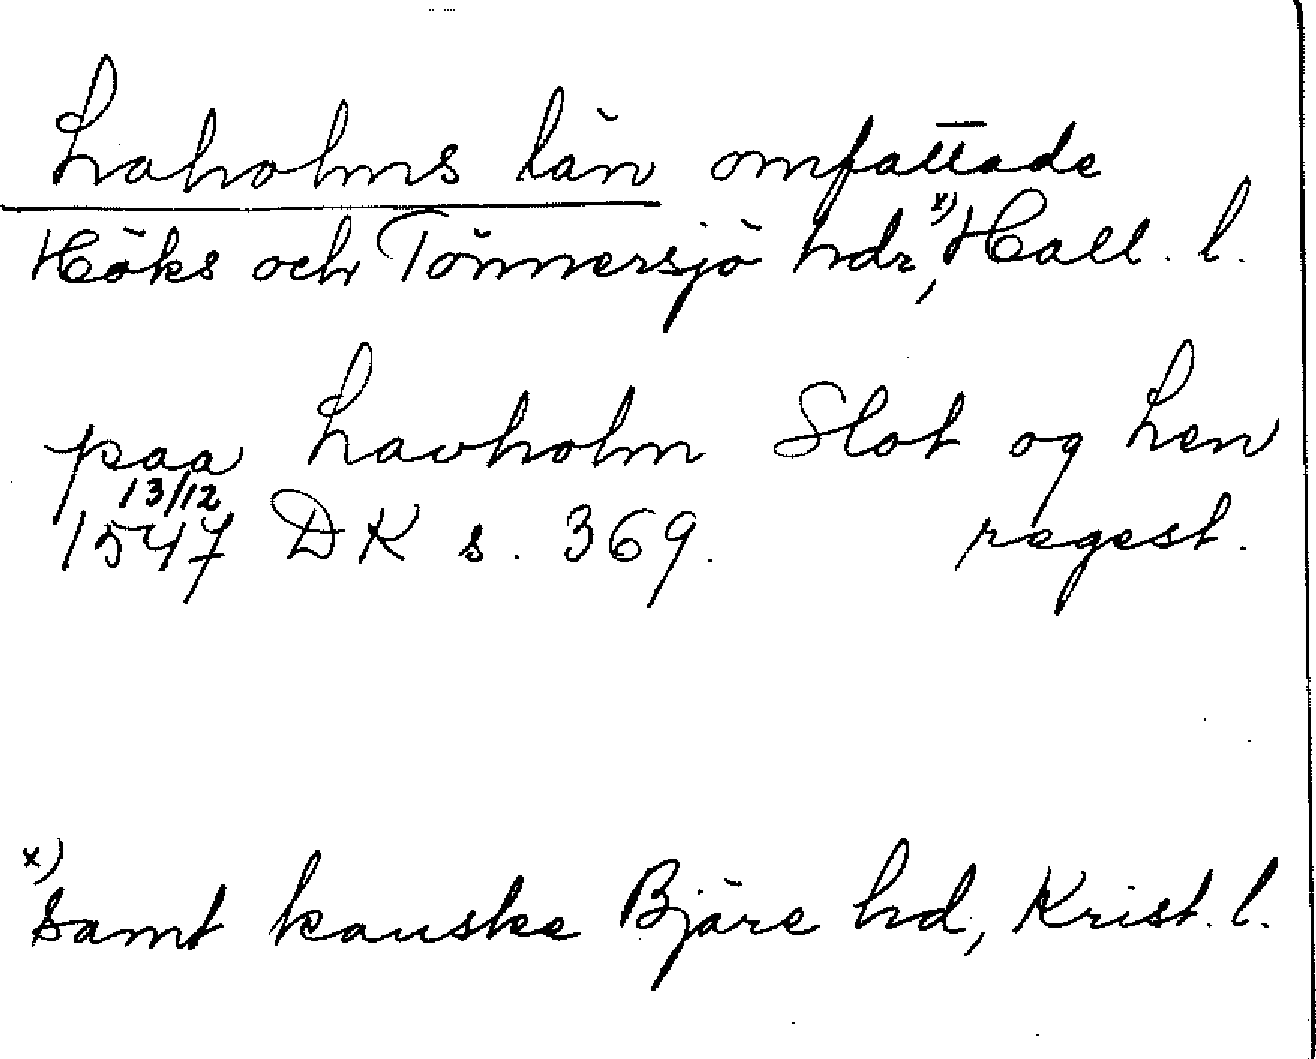 Laholms län omfattade
Höks och Tönnersjö hdr,x) Hall. l.
paa Lavholm Slot og Len
13/12
1547 DK s. 369. regest.
x)
samt kanske Bjäre hd, Krist. l.